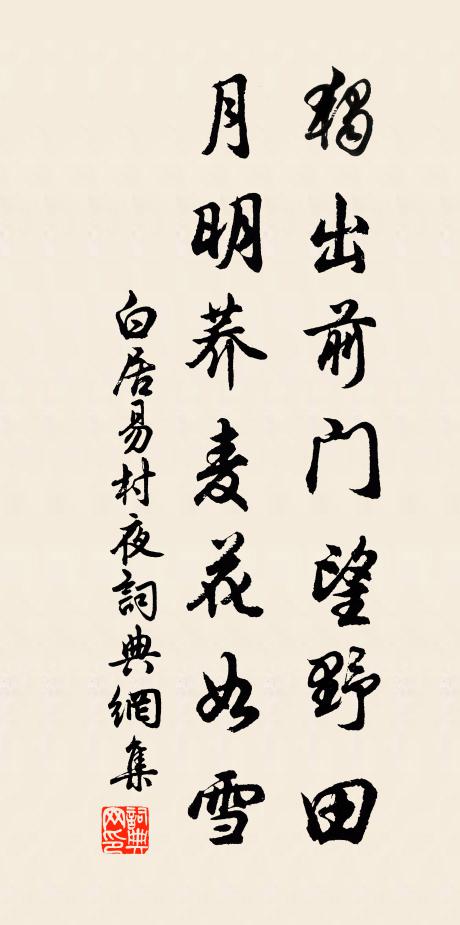 獨出前门望野田
月明荞麦花如雪
白居易村夜詞典網集
詞典网印